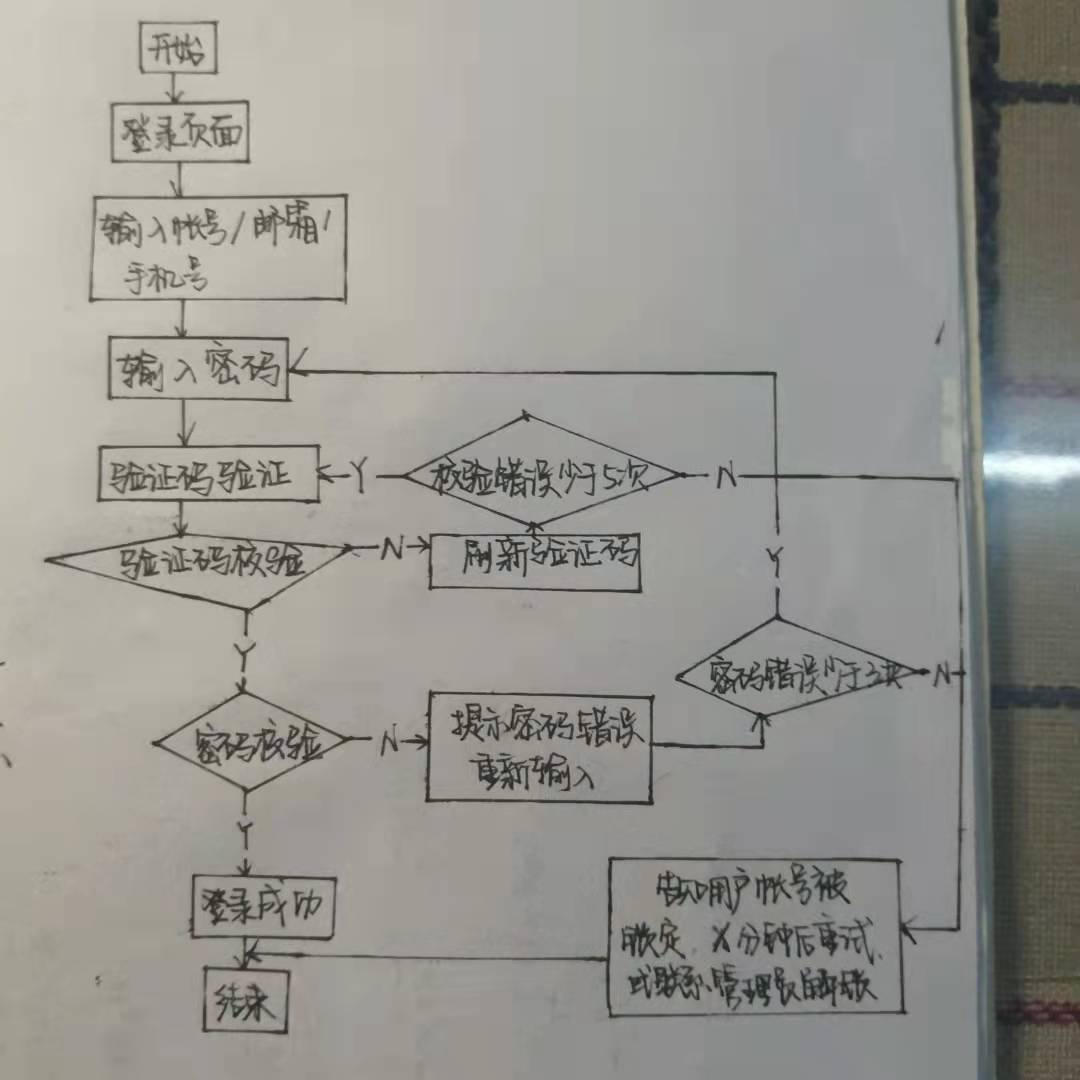 开始
登录页面
输入帐号/邮箱/
手机号
输入密码
验证码验证
Y
校验错误少于5次
N
验证码校验
N
刷新验证码
Y
Y
密码错误少于3次
N
密码校验
N
提示密码错误
重新输入
Y
登录成功
告知用户帐号被
锁定,X分钟后重试,
或联系管理员解锁
结束